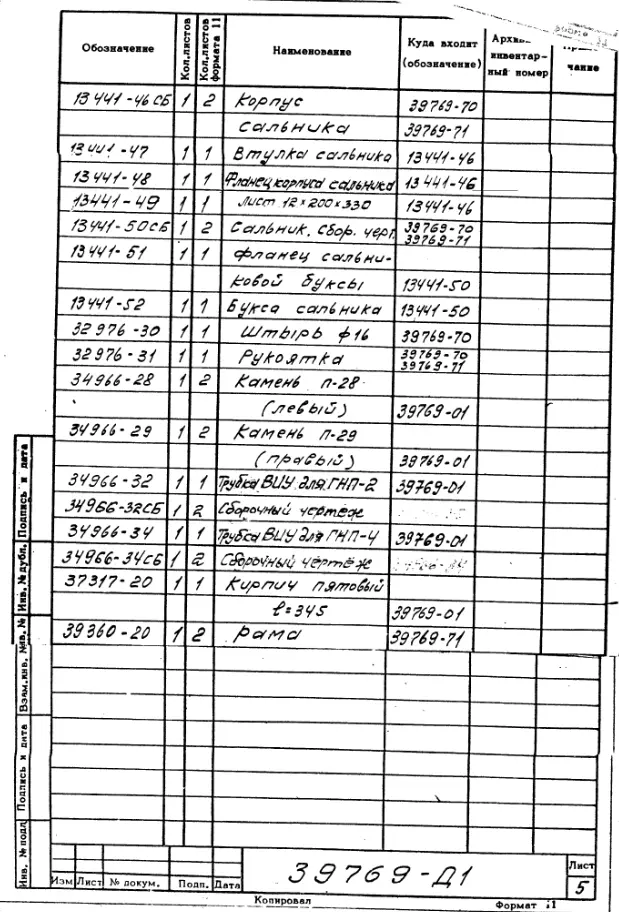 Обозначение Кол.листов Кол.листов формата 11 Наименование Куда входит (обозначение) инвентарный номер чание
13441-46СБ 1 2 Корпус 39769-70
сальника 39769-71
13441-47 1 1 Втулка сальника 13441-46
13441-48 1 1 Фланец корпуса сальника 13441-46
13441-49 1 1 Лист 12×200×330 13441-46
13441-50СБ 1 2 Сальник. Сбор. черт. 39769-70
39769-71
13441-51 1 1 фланец сальни-
ковой буксы 13441-50
13441-52 1 1 Букса сальника 13441-50
32976-30 1 1 Штырь ф16 39769-70
32976-31 1 1 Рукоятка 39769-70
39769-71
34966-28 1 2 Камень п-28
(левый) 39769-01
34966-29 1 2 Камень п-29
(правый) 39769-01
34966-32 1 1 Трубка ВЦУ для ГНП-2 39769-01
34966-32СБ 1 2 Сборочный чертеж
34966-34 1 1 Трубка ВЦУ для ГНП-4 39769-01
34966-34СБ 1 2 Сборочный чертёж
37317-20 1 1 Кирпич пятовый
ℓ=345 39769-01
39360-20 1 2 рама 39769-71
Инв. № подл Подпись и дата Взам.инв. № Инв. № дубл. Подпись и дата
Изм Лист № докум. Подп. Дата 39769-Д1 Лист 5
Копировал Формат 11